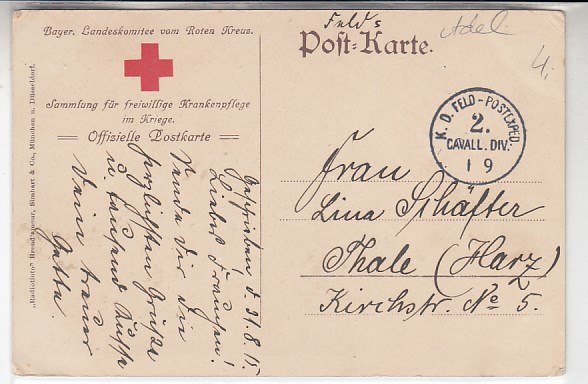 Bayer. Landeskomitee vom Roten Kreuz.
Sammlung für freiwillige Krankenpflege
im Kriege.
Offizielle Postkarte
Feld
Post-Karte.
Adel
4.
K. D. FELD-POSTEXPED.
2.
CAVALL. DIV.
1 9
Frau
Lina Schäfter
Thale (Harz)
Kirchstr. No 5.
Geschrieben d. 31.8.15.
Liebes Frauchen!
Sende Dir die
herzlichsten Grüße
u. tausend Küsse
Dein treuer
Gatte.
„Radiofoto“ Brend'amour, Simhart & Co., München u. Düsseldorf.